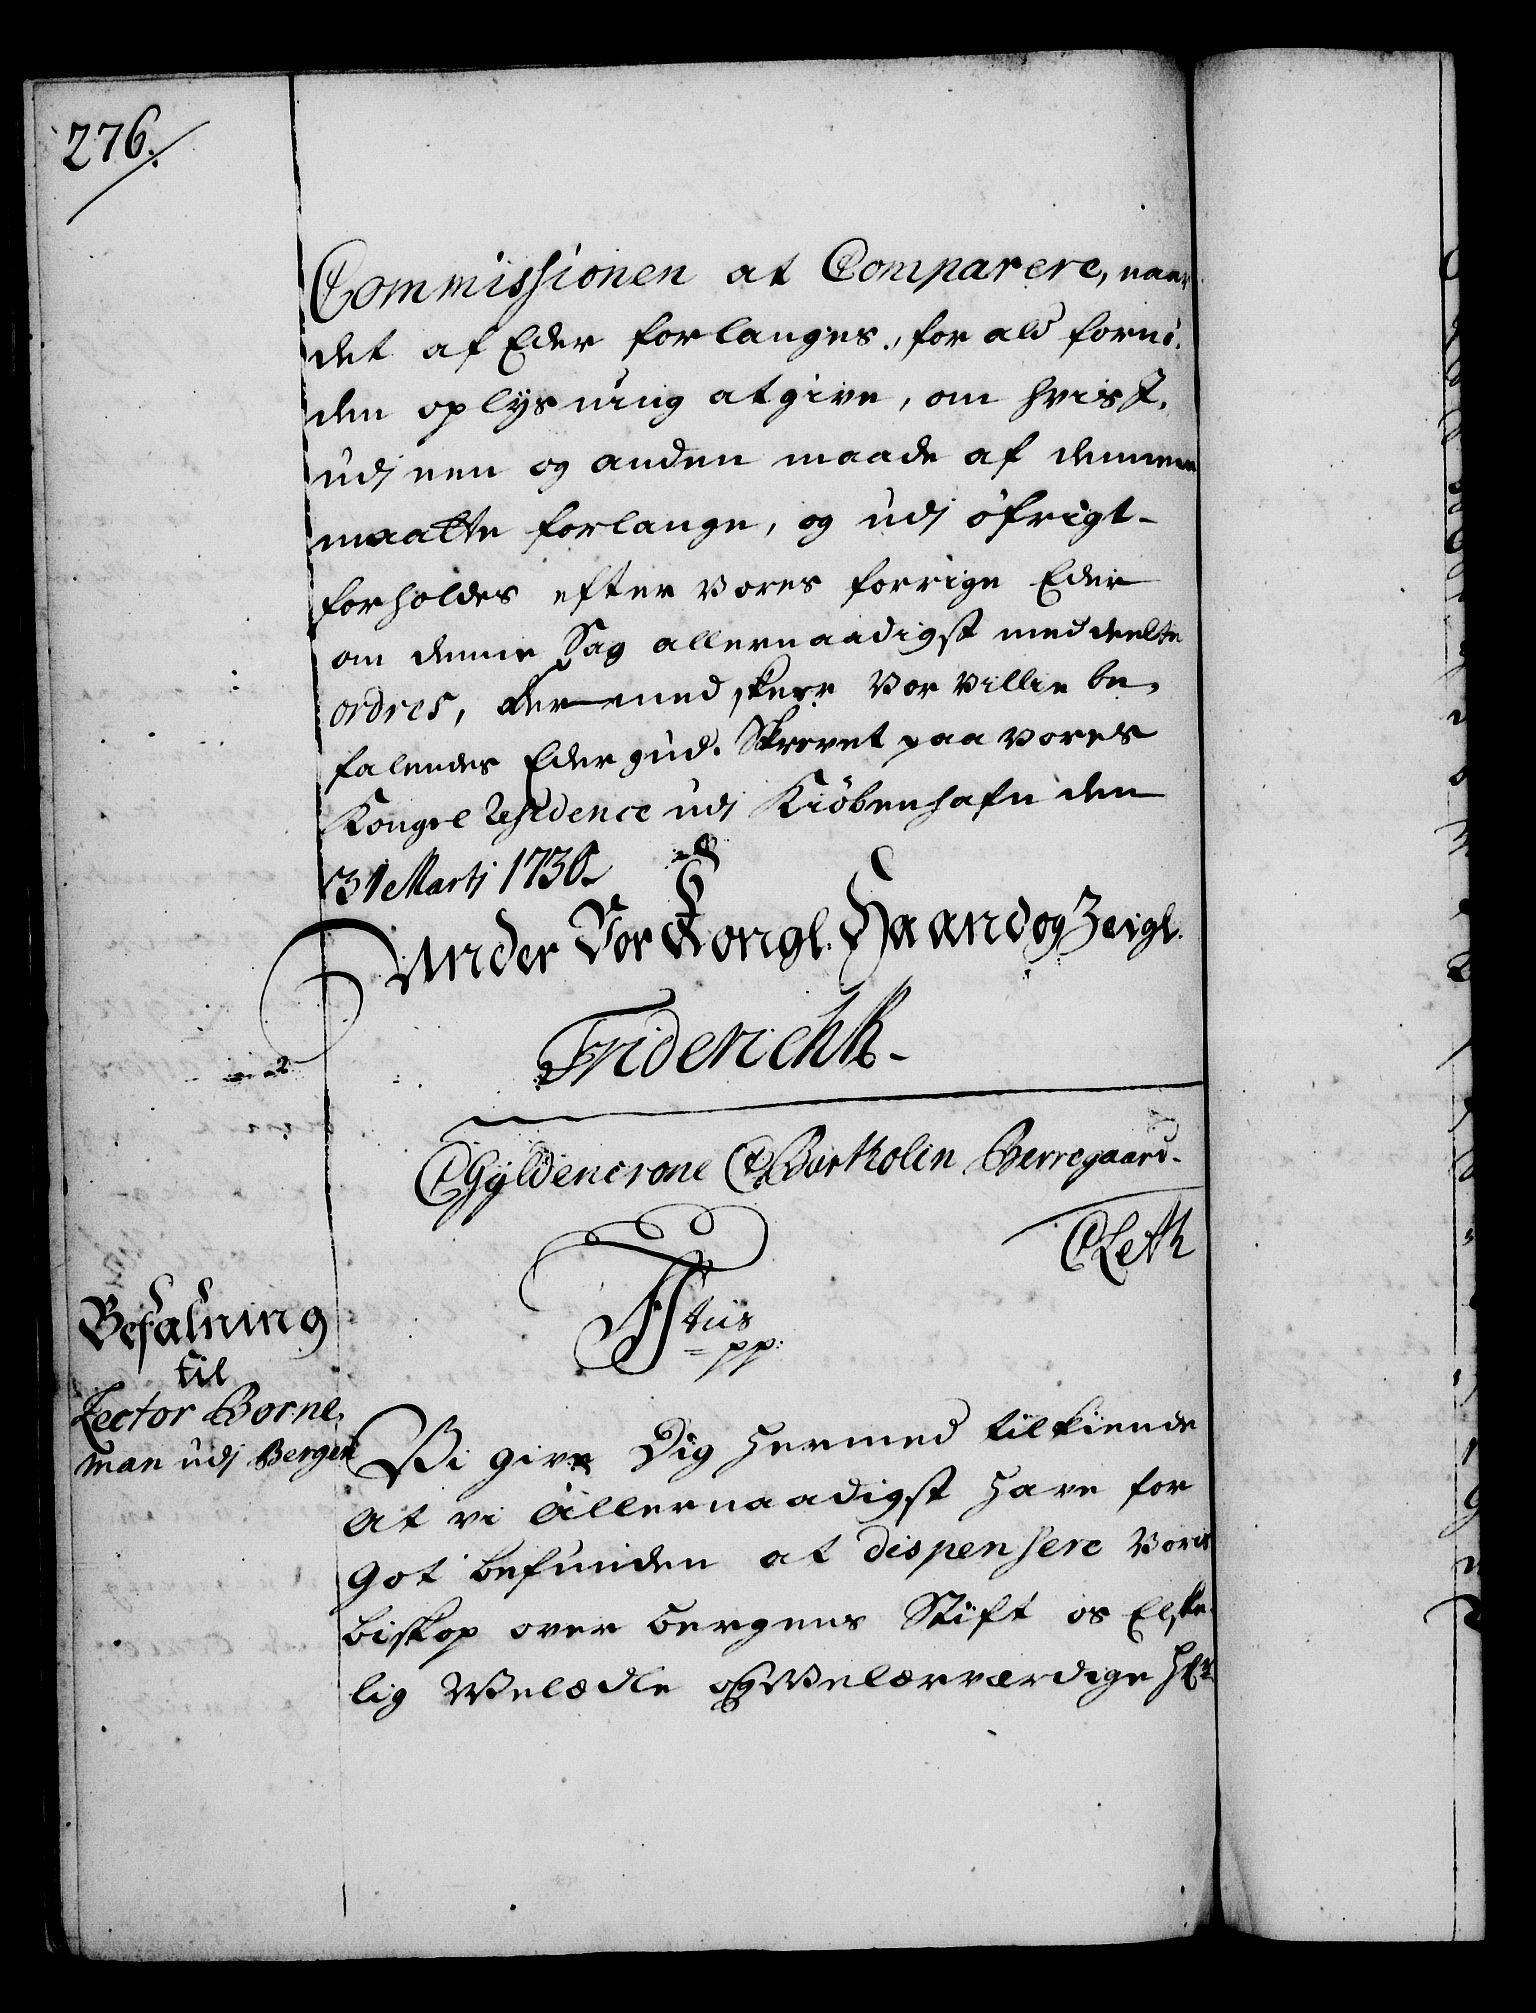 276.
Commissionen at Comparere, naar
det af Eder forlanges, for ald forni¬
den oplysning at give, om hvis I,
udj een og anden maade af dennem
maatte forlange, og udj øfrigt
forholdes efter Vores forrige Eder
om denne Sag allernaadigst meddeelte
ordres, Dermed skeer Vor Villie be¬
falendes Eder gud. Skrevet paa Vores
Kongel Residence udj Kiöbenhafn den
31 Martj 1730
Under Vor Kongl. Haand og Zeigl.
Friderich R
CGyldencrone C Bartholin Berregaard
CLeth
F 4tus
pp:
Befalning
til
Lector Borne,
man udj Bergen
Vi give Dig hermed tilkiende
At vi Allernaadigst have for
Got befunden at dispensere Voris
biskop over Bergens Stift os Elske¬
lig Welædle og Welærværdige Hr